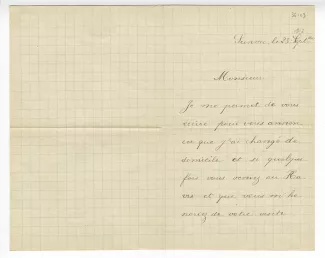 le 25
Monsieur
Je me permet de vous
écrire pour vous anonser
que j'ai changé de
domicile et si quelque
fois vous venez au Ha
vre et que vous m'ho
noriez de votre visite